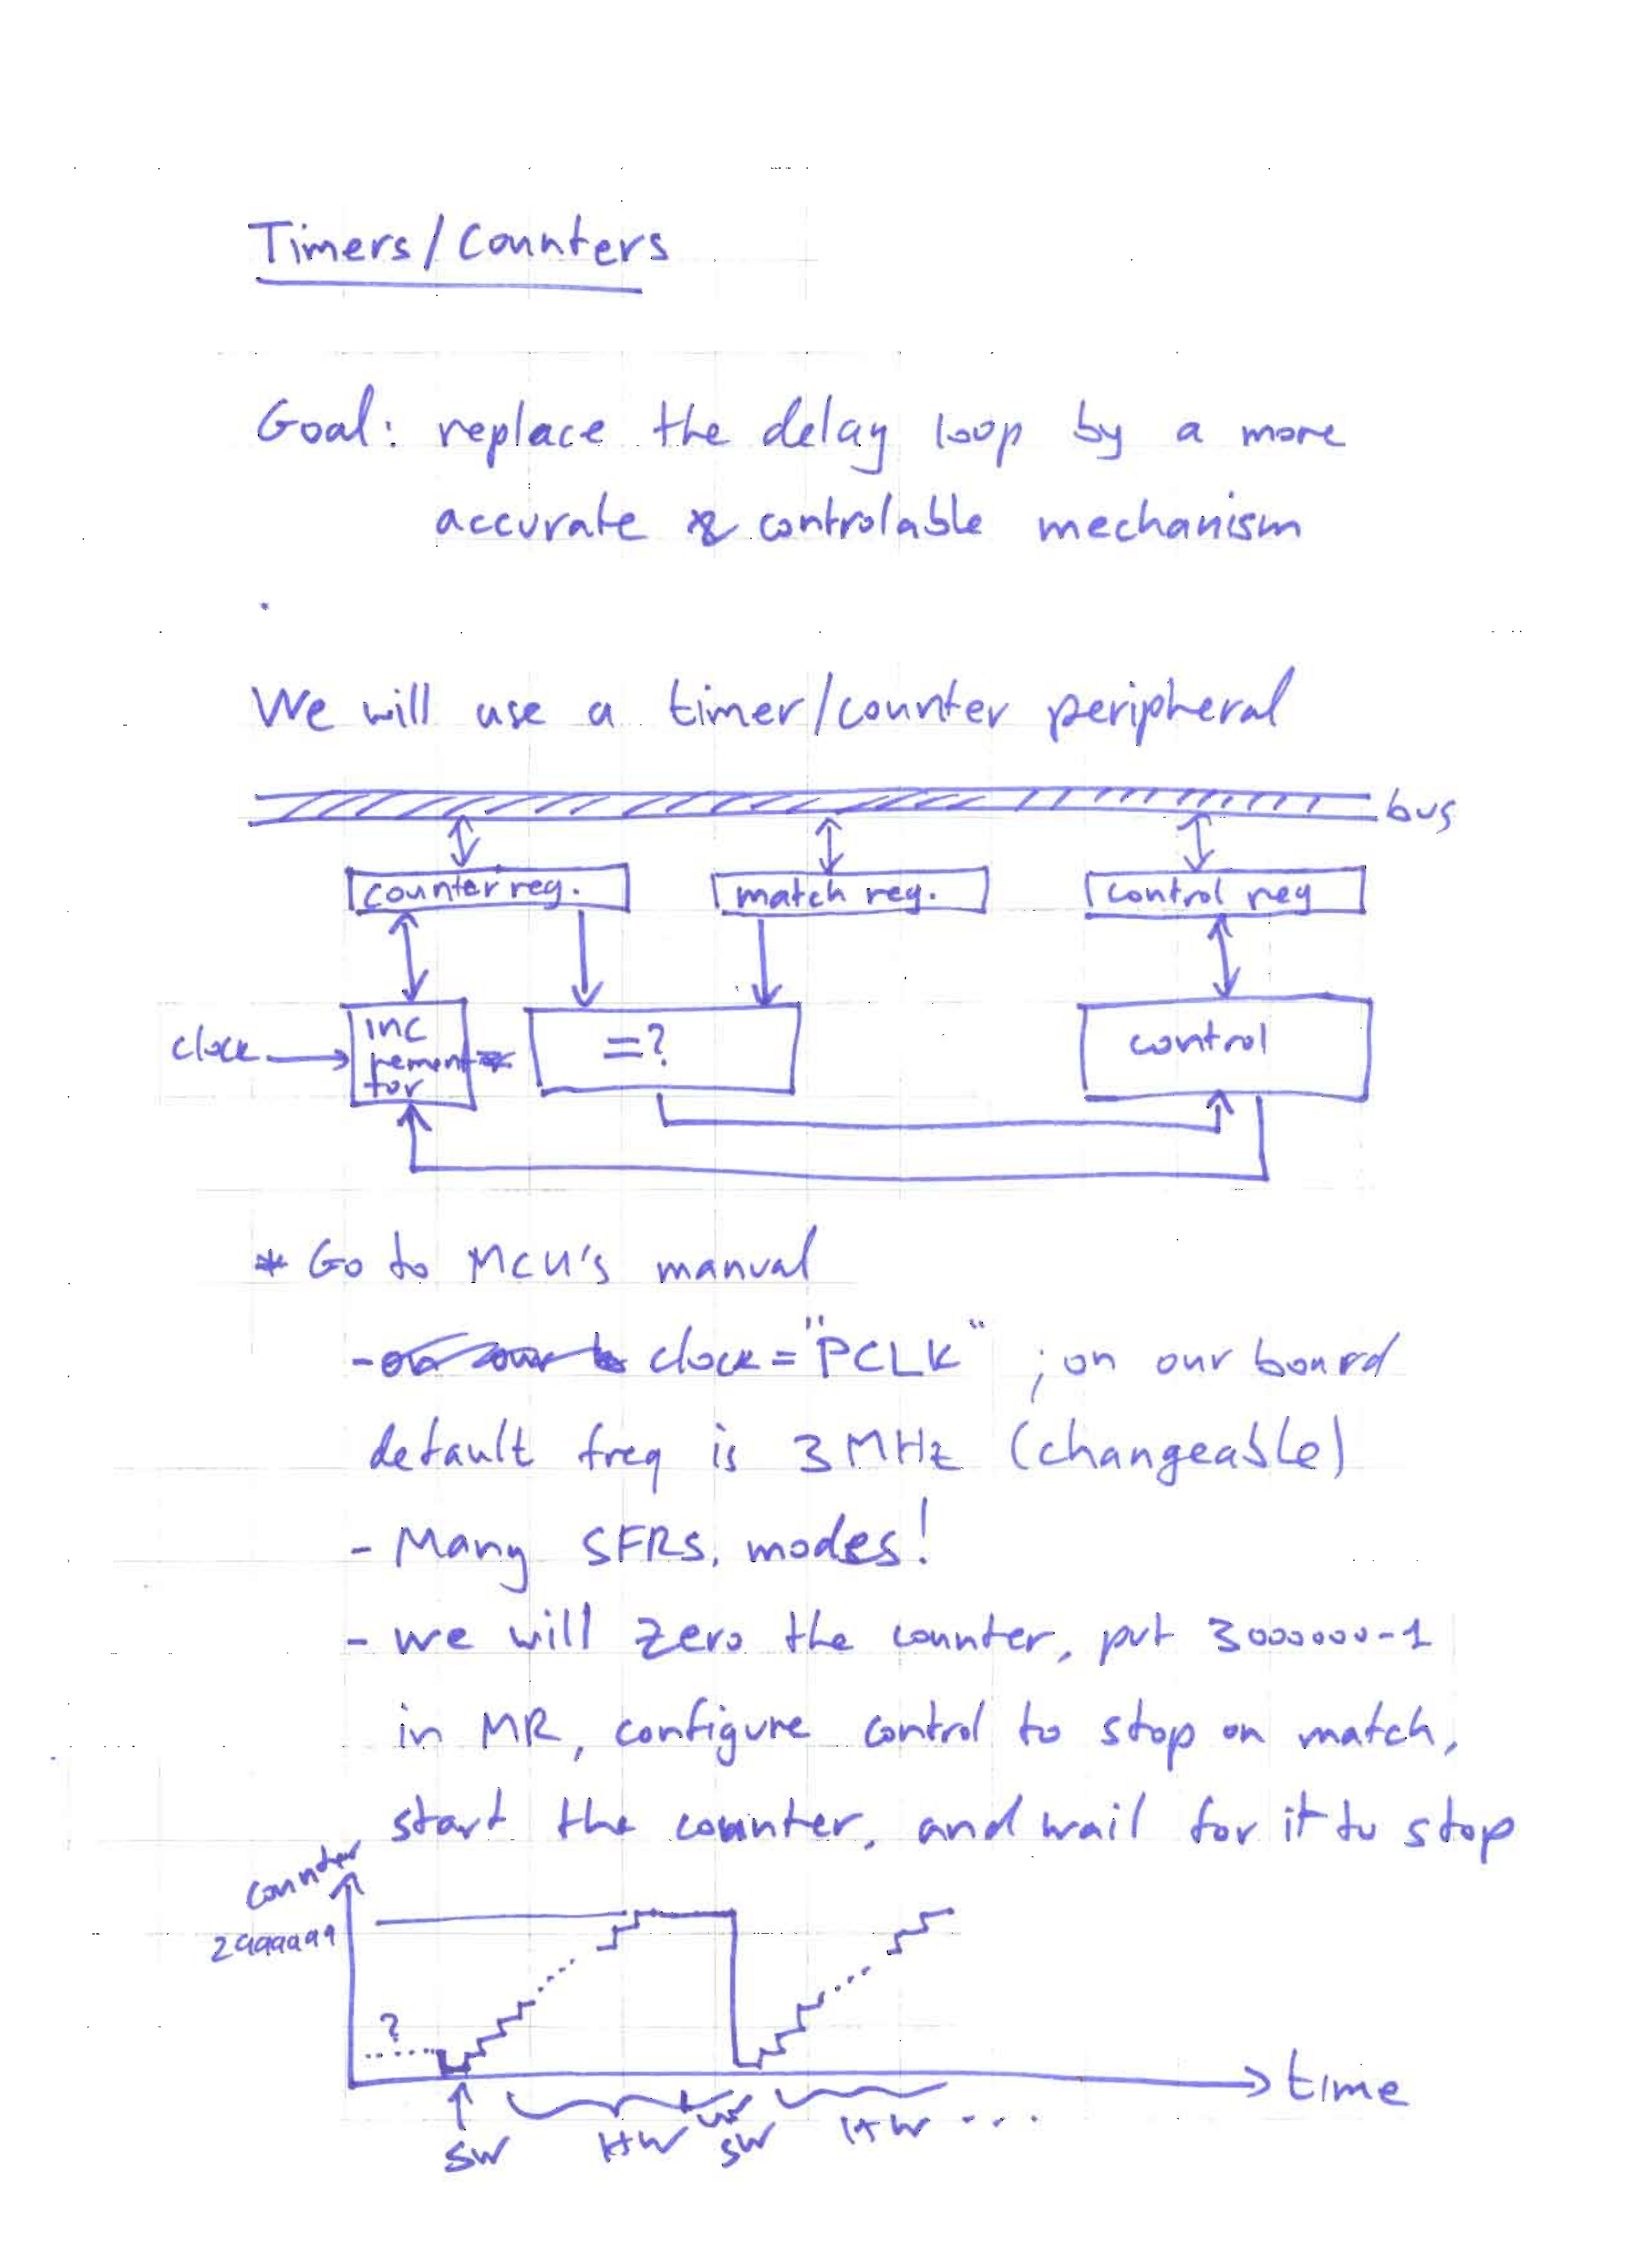 Timers/Counters
Goal: replace the delay loop by a more
accurate & controlable mechanism
We will use a timer/counter peripheral
bus
counter reg. match reg. control reg
clock inc =? control
remen
tor
* Go to MCU's manual
- clock = "PCLK" ; on our board
default freq is 3MHz (changeable)
- Many SFRs, modes!
- we will zero the counter, put 3000000-1
in MR, configure control to stop on match,
start the counter, and wait for it to stop
counter
2999999
?
time
SW HW SW HW ...